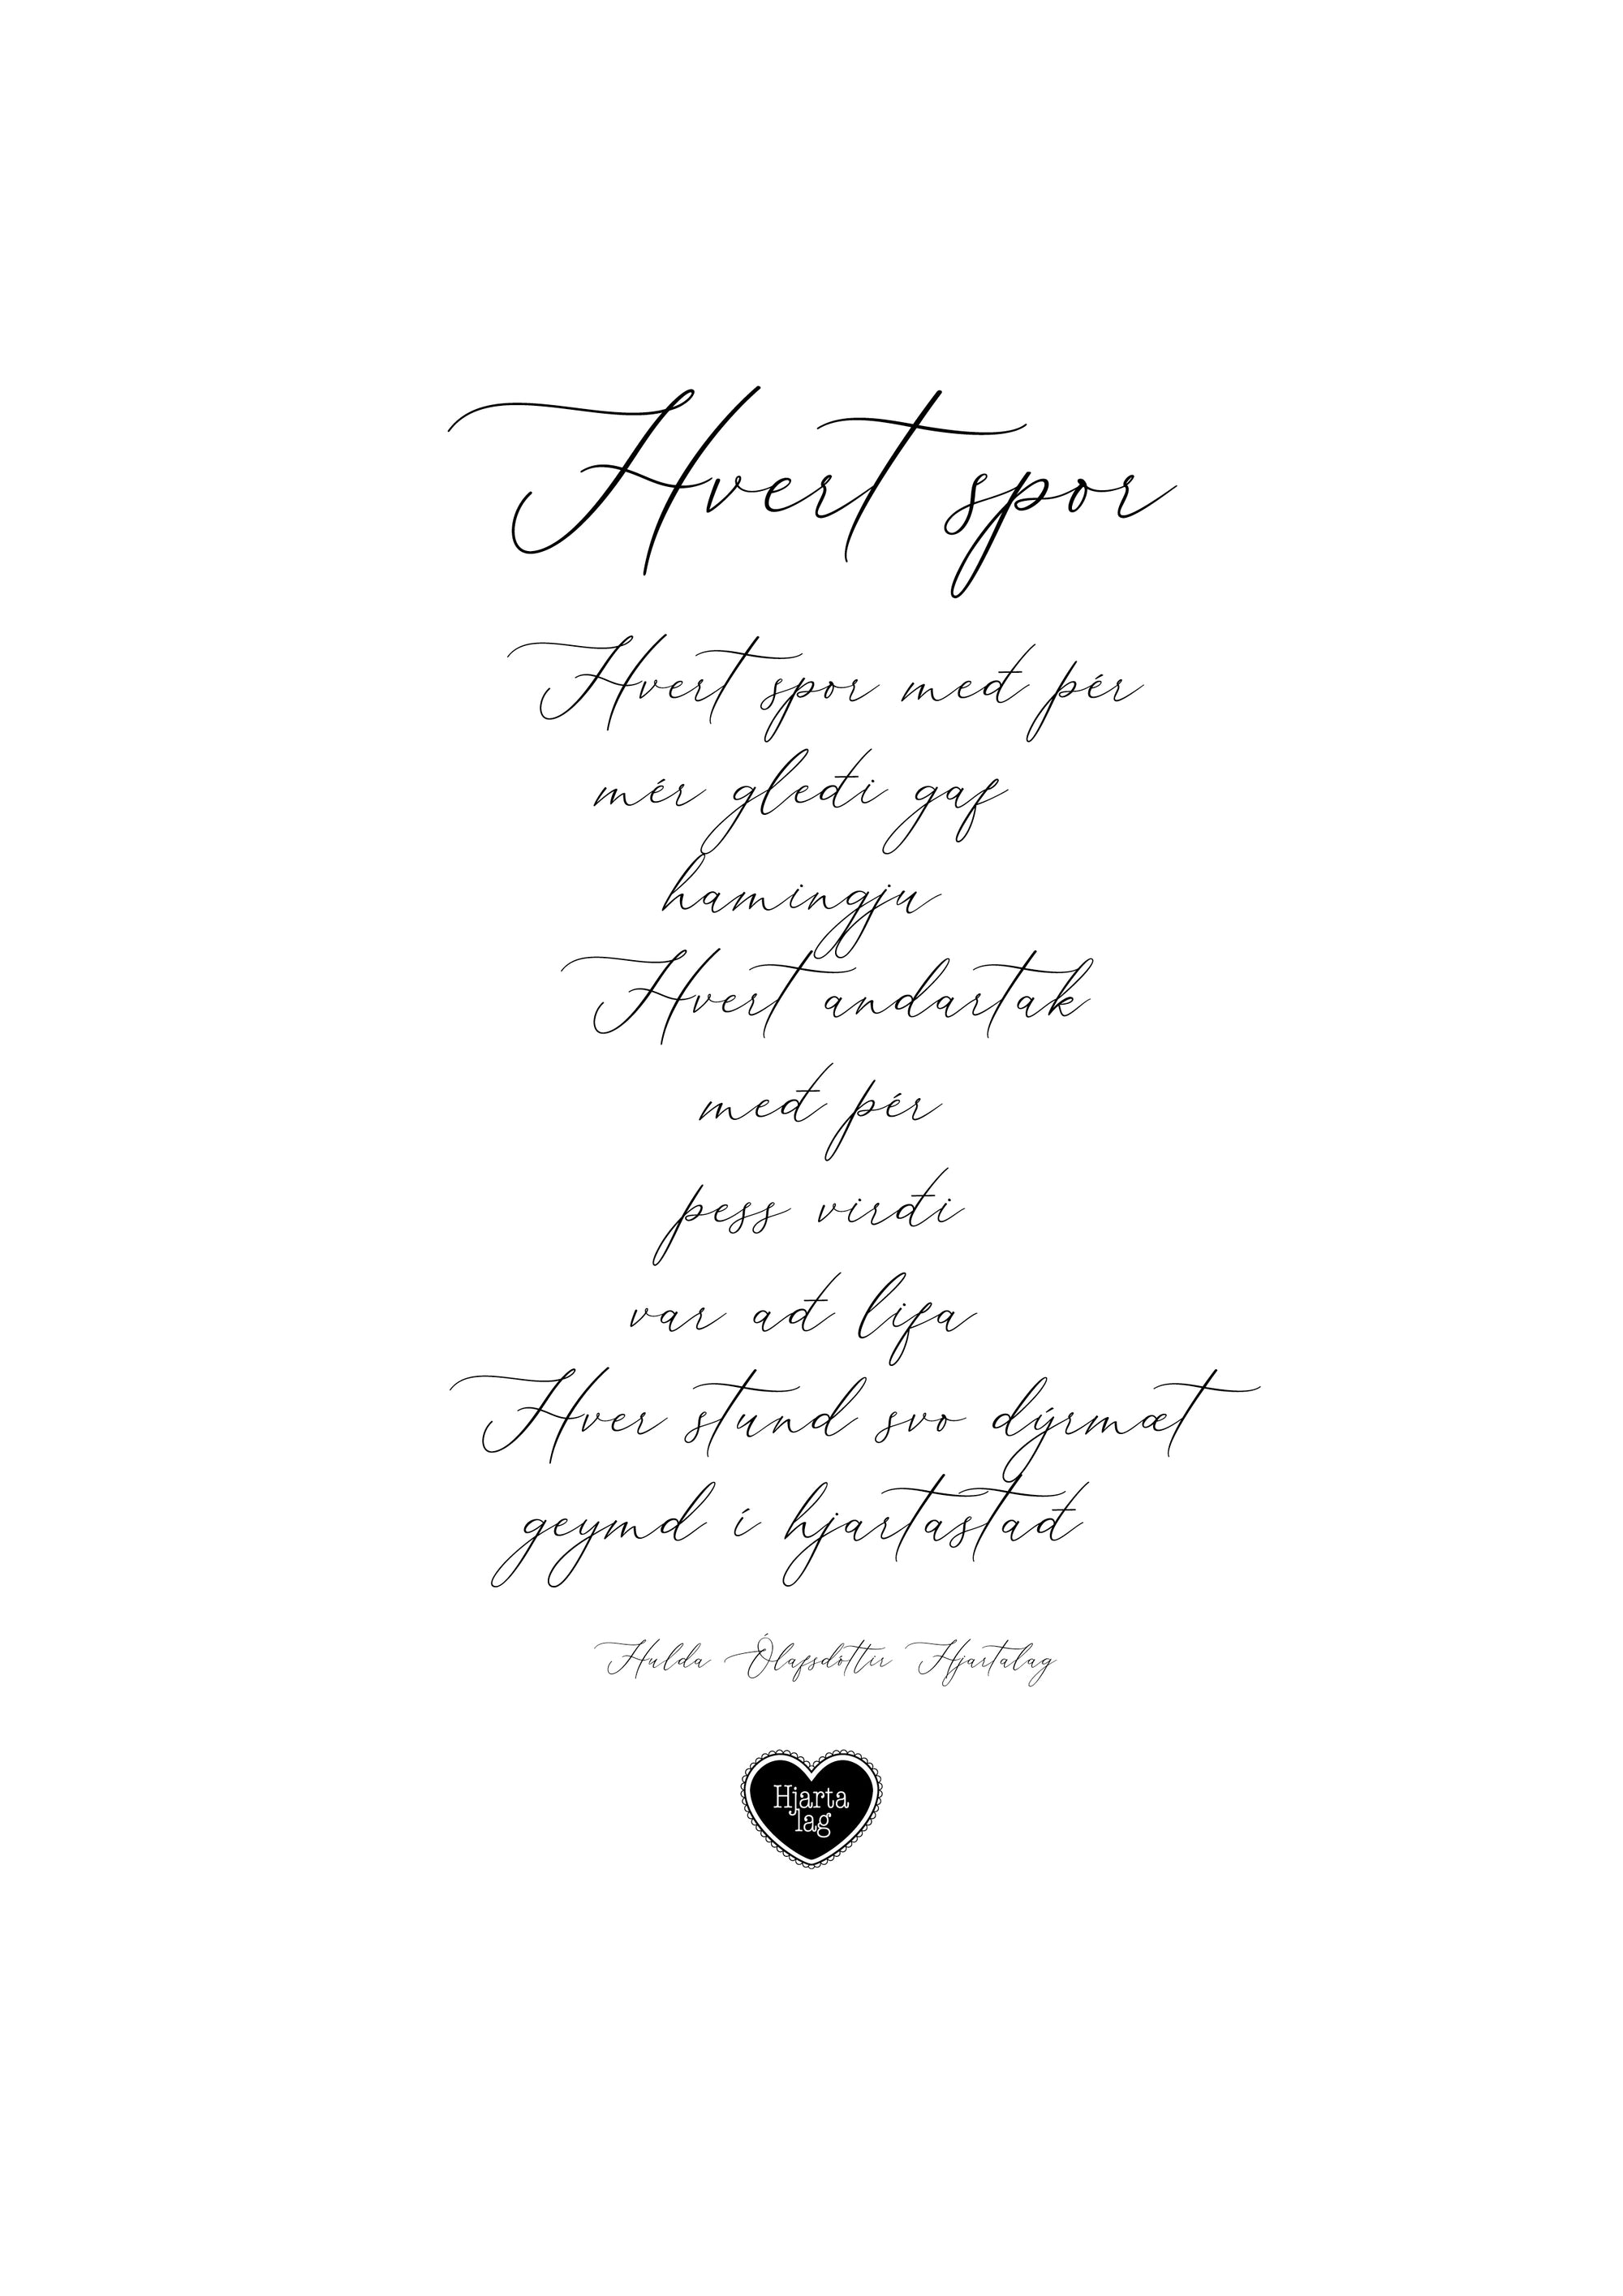 Hvert spor
Hvert spor með þér
mér gleði gaf
hamingju
Hvert andartak
með þér
þess virði
var að lifa
Hver stund svo dýrmæt
geymd í hjartastað
Hulda Ólafsdóttir Hjartalag
Hjarta
lag